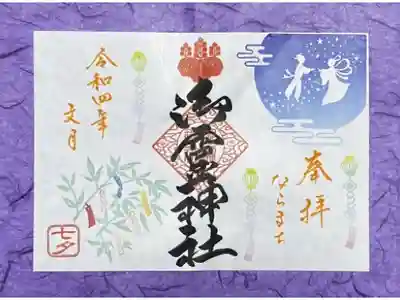 奉拝
ならまち
御霊神社
令和四年
文月
七夕